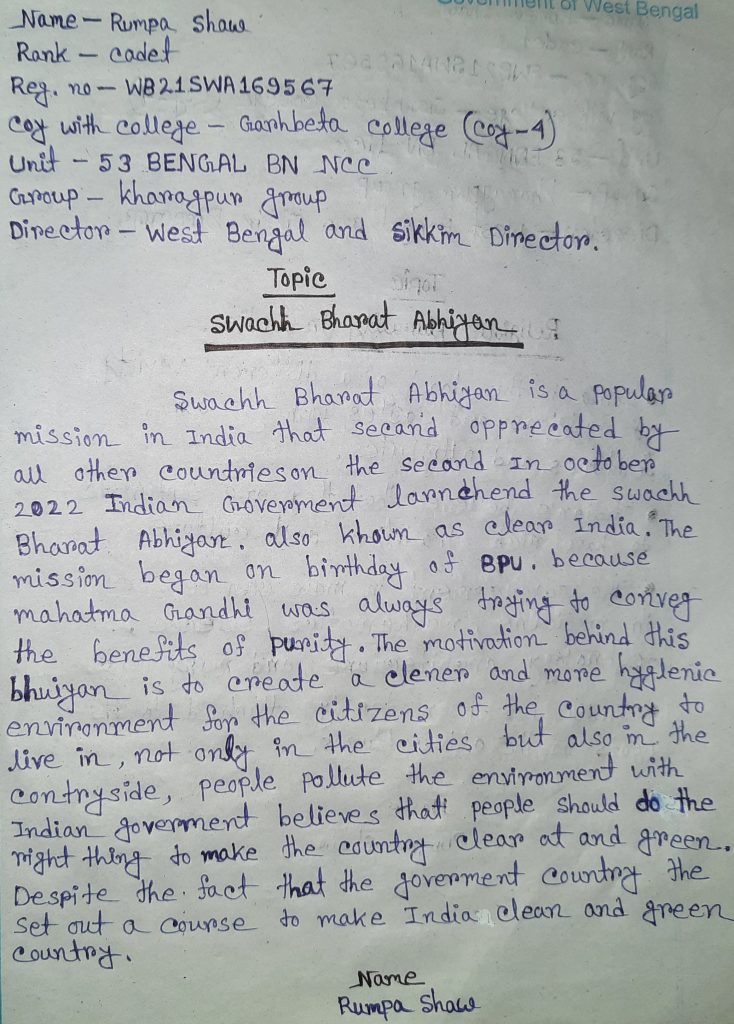 Government of West Bengal
Name – Rumpa Shaw
Rank – cadet
Reg. no – WB21SWA169567
Coy with college – Garhbeta college (coy-4)
Unit – 53 BENGAL BN NCC
Group – kharagpur group
Director – West Bengal and Sikkim Director.
Topic
Swachh Bharat Abhiyan
Swachh Bharat Abhiyan is a popular
mission in India that secand opprecated by
all other countrieson the second In october
2022 Indian Goverment larnchend the swachh
Bharat Abhiyan. also khown as clear India. The
mission began on birthday of BPU. because
mahatma Gandhi was always trying to conveg
the benefits of purity. The motivation behind this
bhuiyan is to create a clener and more hyglenic
environment for the citizens of the country to
live in, not only in the cities but also in the
contryside, people pollute the environment with
Indian goverment believes that people should do the
right thing to make the country clear at and green.
Despite the fact that the goverment country the
set out a course to make India clean and green
country.
Name
Rumpa Shaw